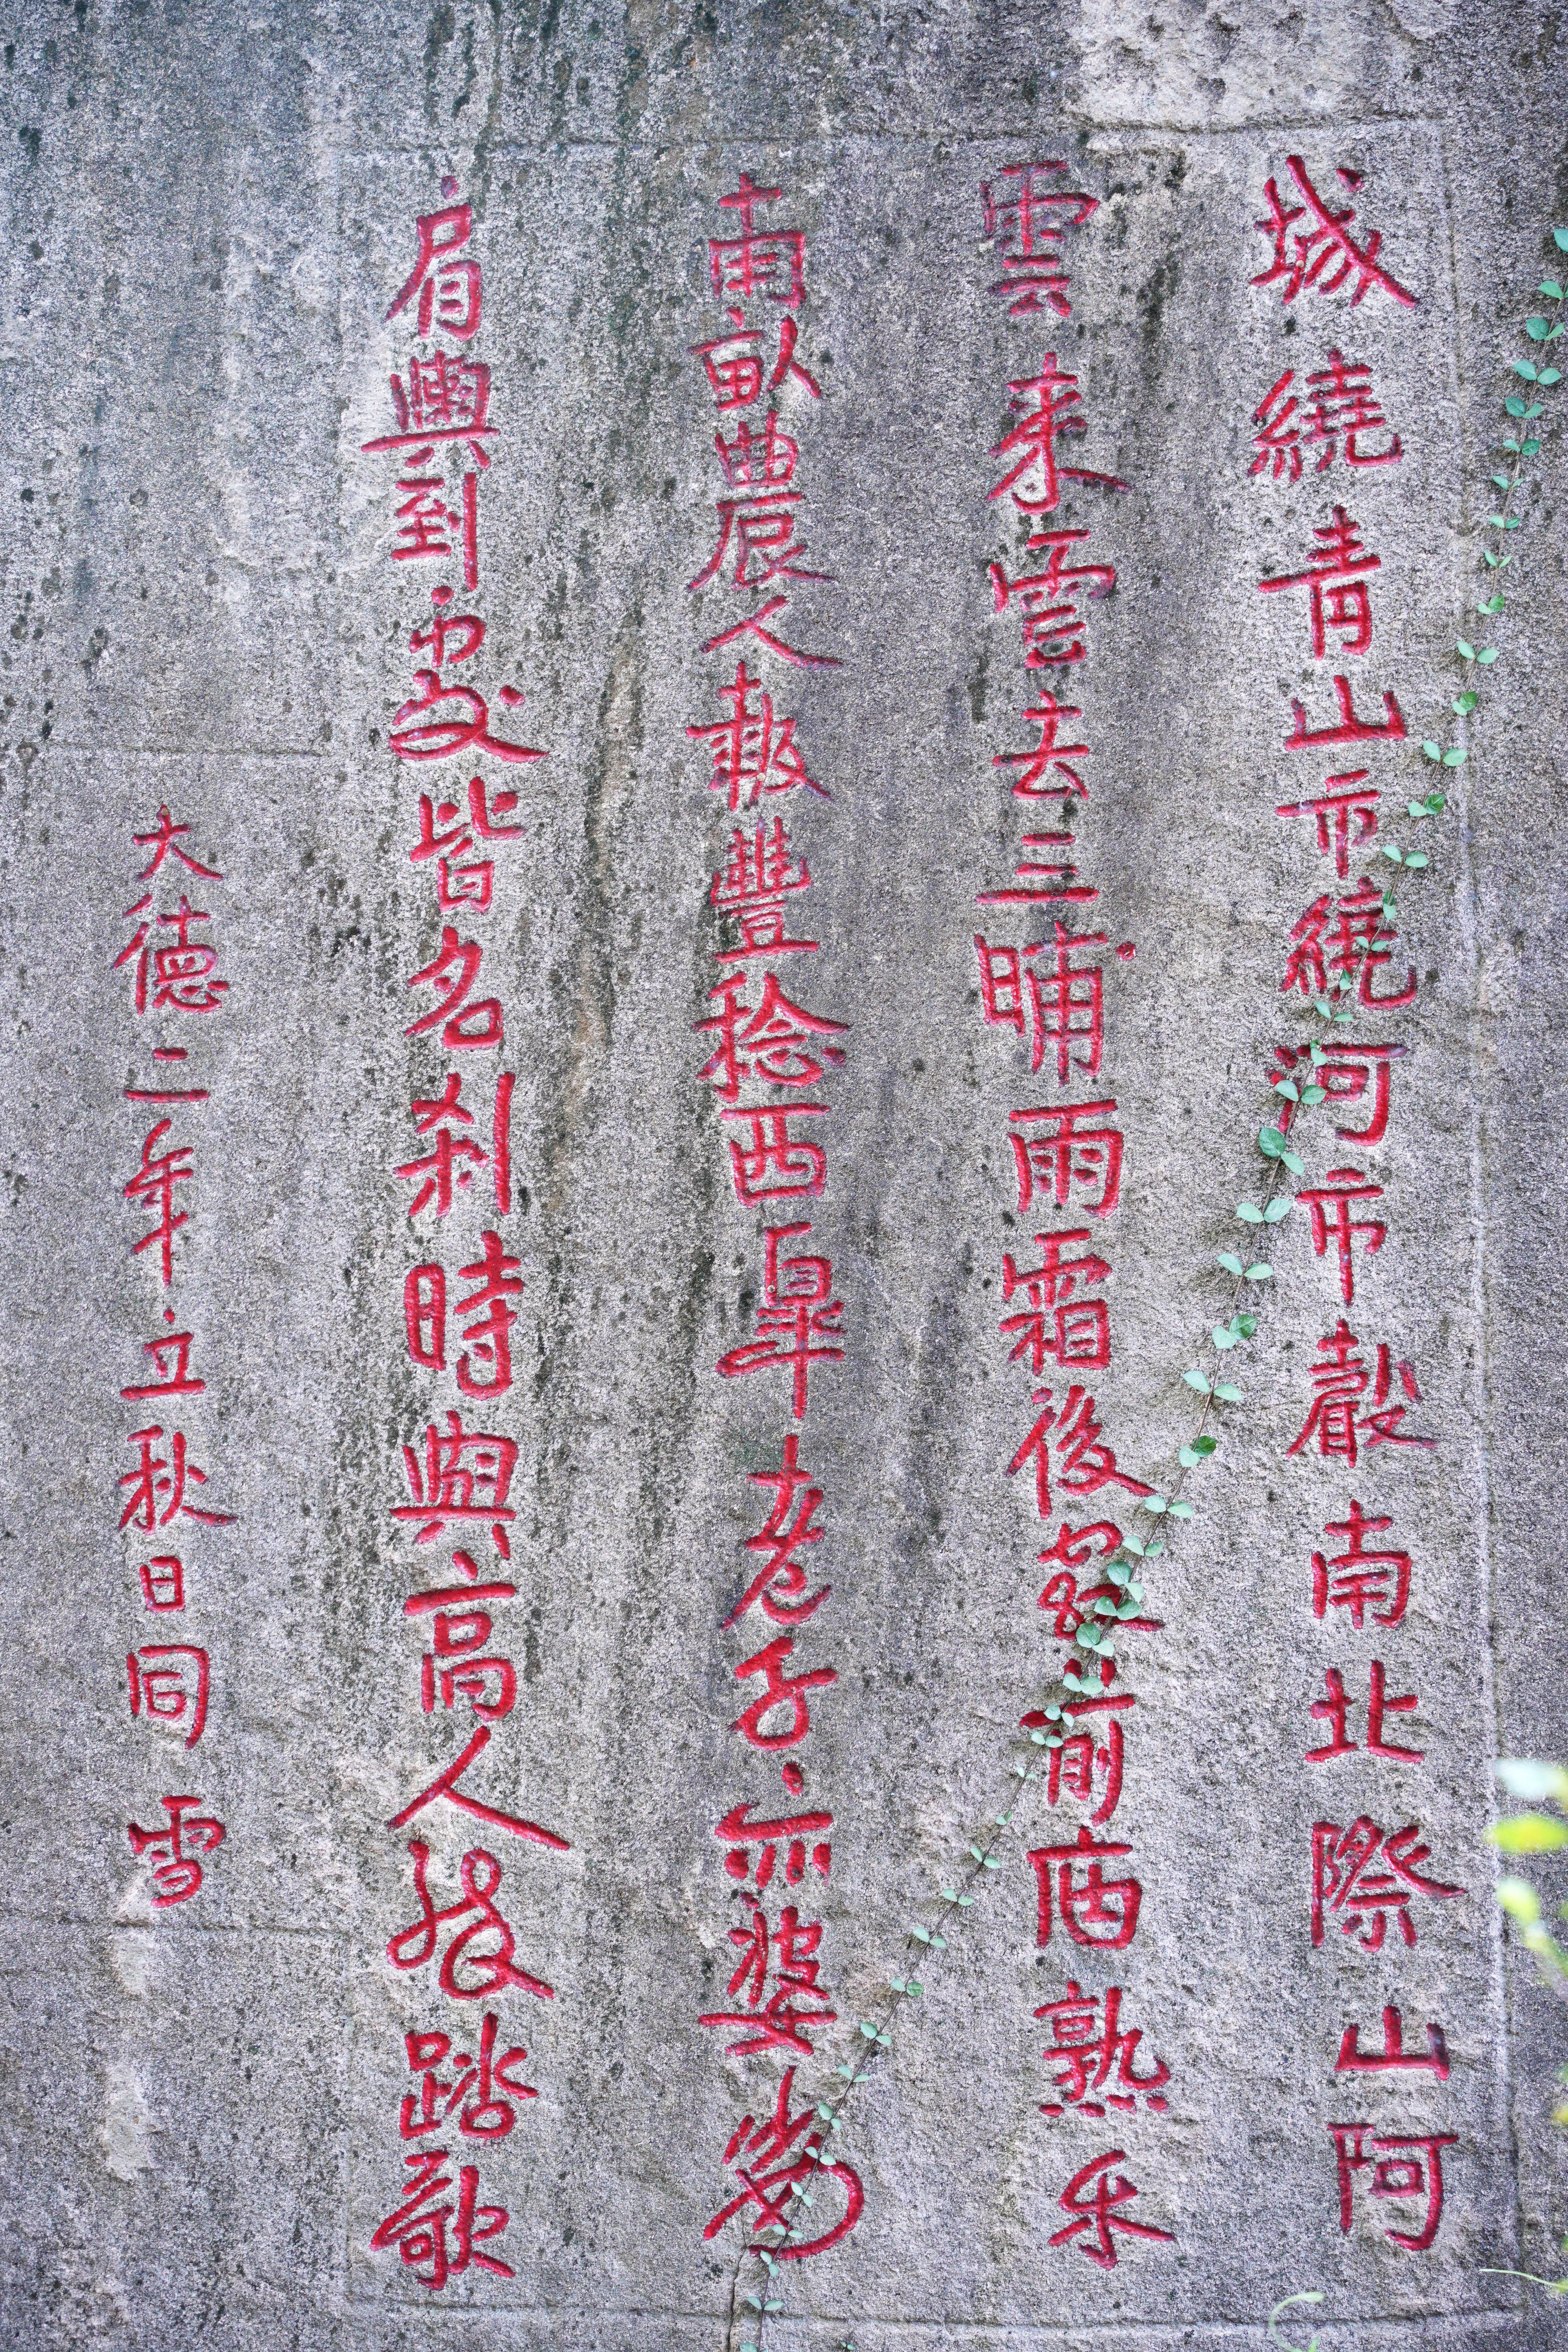 城繞青山市繞河市聲南北際山阿
雲來雲去三晡雨霜後前熟禾
南畝農人報豐稔西皐老子亦婆娑
肩輿到處皆名刹時與高人發踏歌
大德二年立秋日同雪